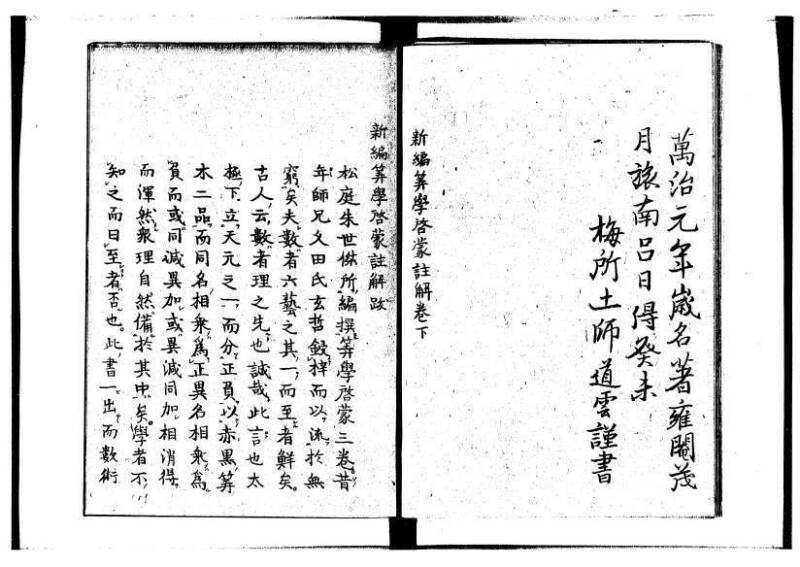 萬治元年歳名著雍閹茂
月旅南呂日得癸未
梅所土師道雲謹書
新編筭學啓蒙註解卷下
新編筭學啓蒙註解跋
松庭朱世傑所編撰筭學啓蒙三卷昔
年師兄久田氏玄哲鋟梓而以流於無
窮矣夫數者六藝之其一而至者鮮矣
古人云數者理之先也誠哉此言也太
極下立天元之一而分正負以赤黒筭
木二品而同名相乗爲正異名相乗爲
負而或同减異加或異減同加相消得
而渾然衆理自然備於其中矣學者不
知之而曰至者否也此書一出而數術